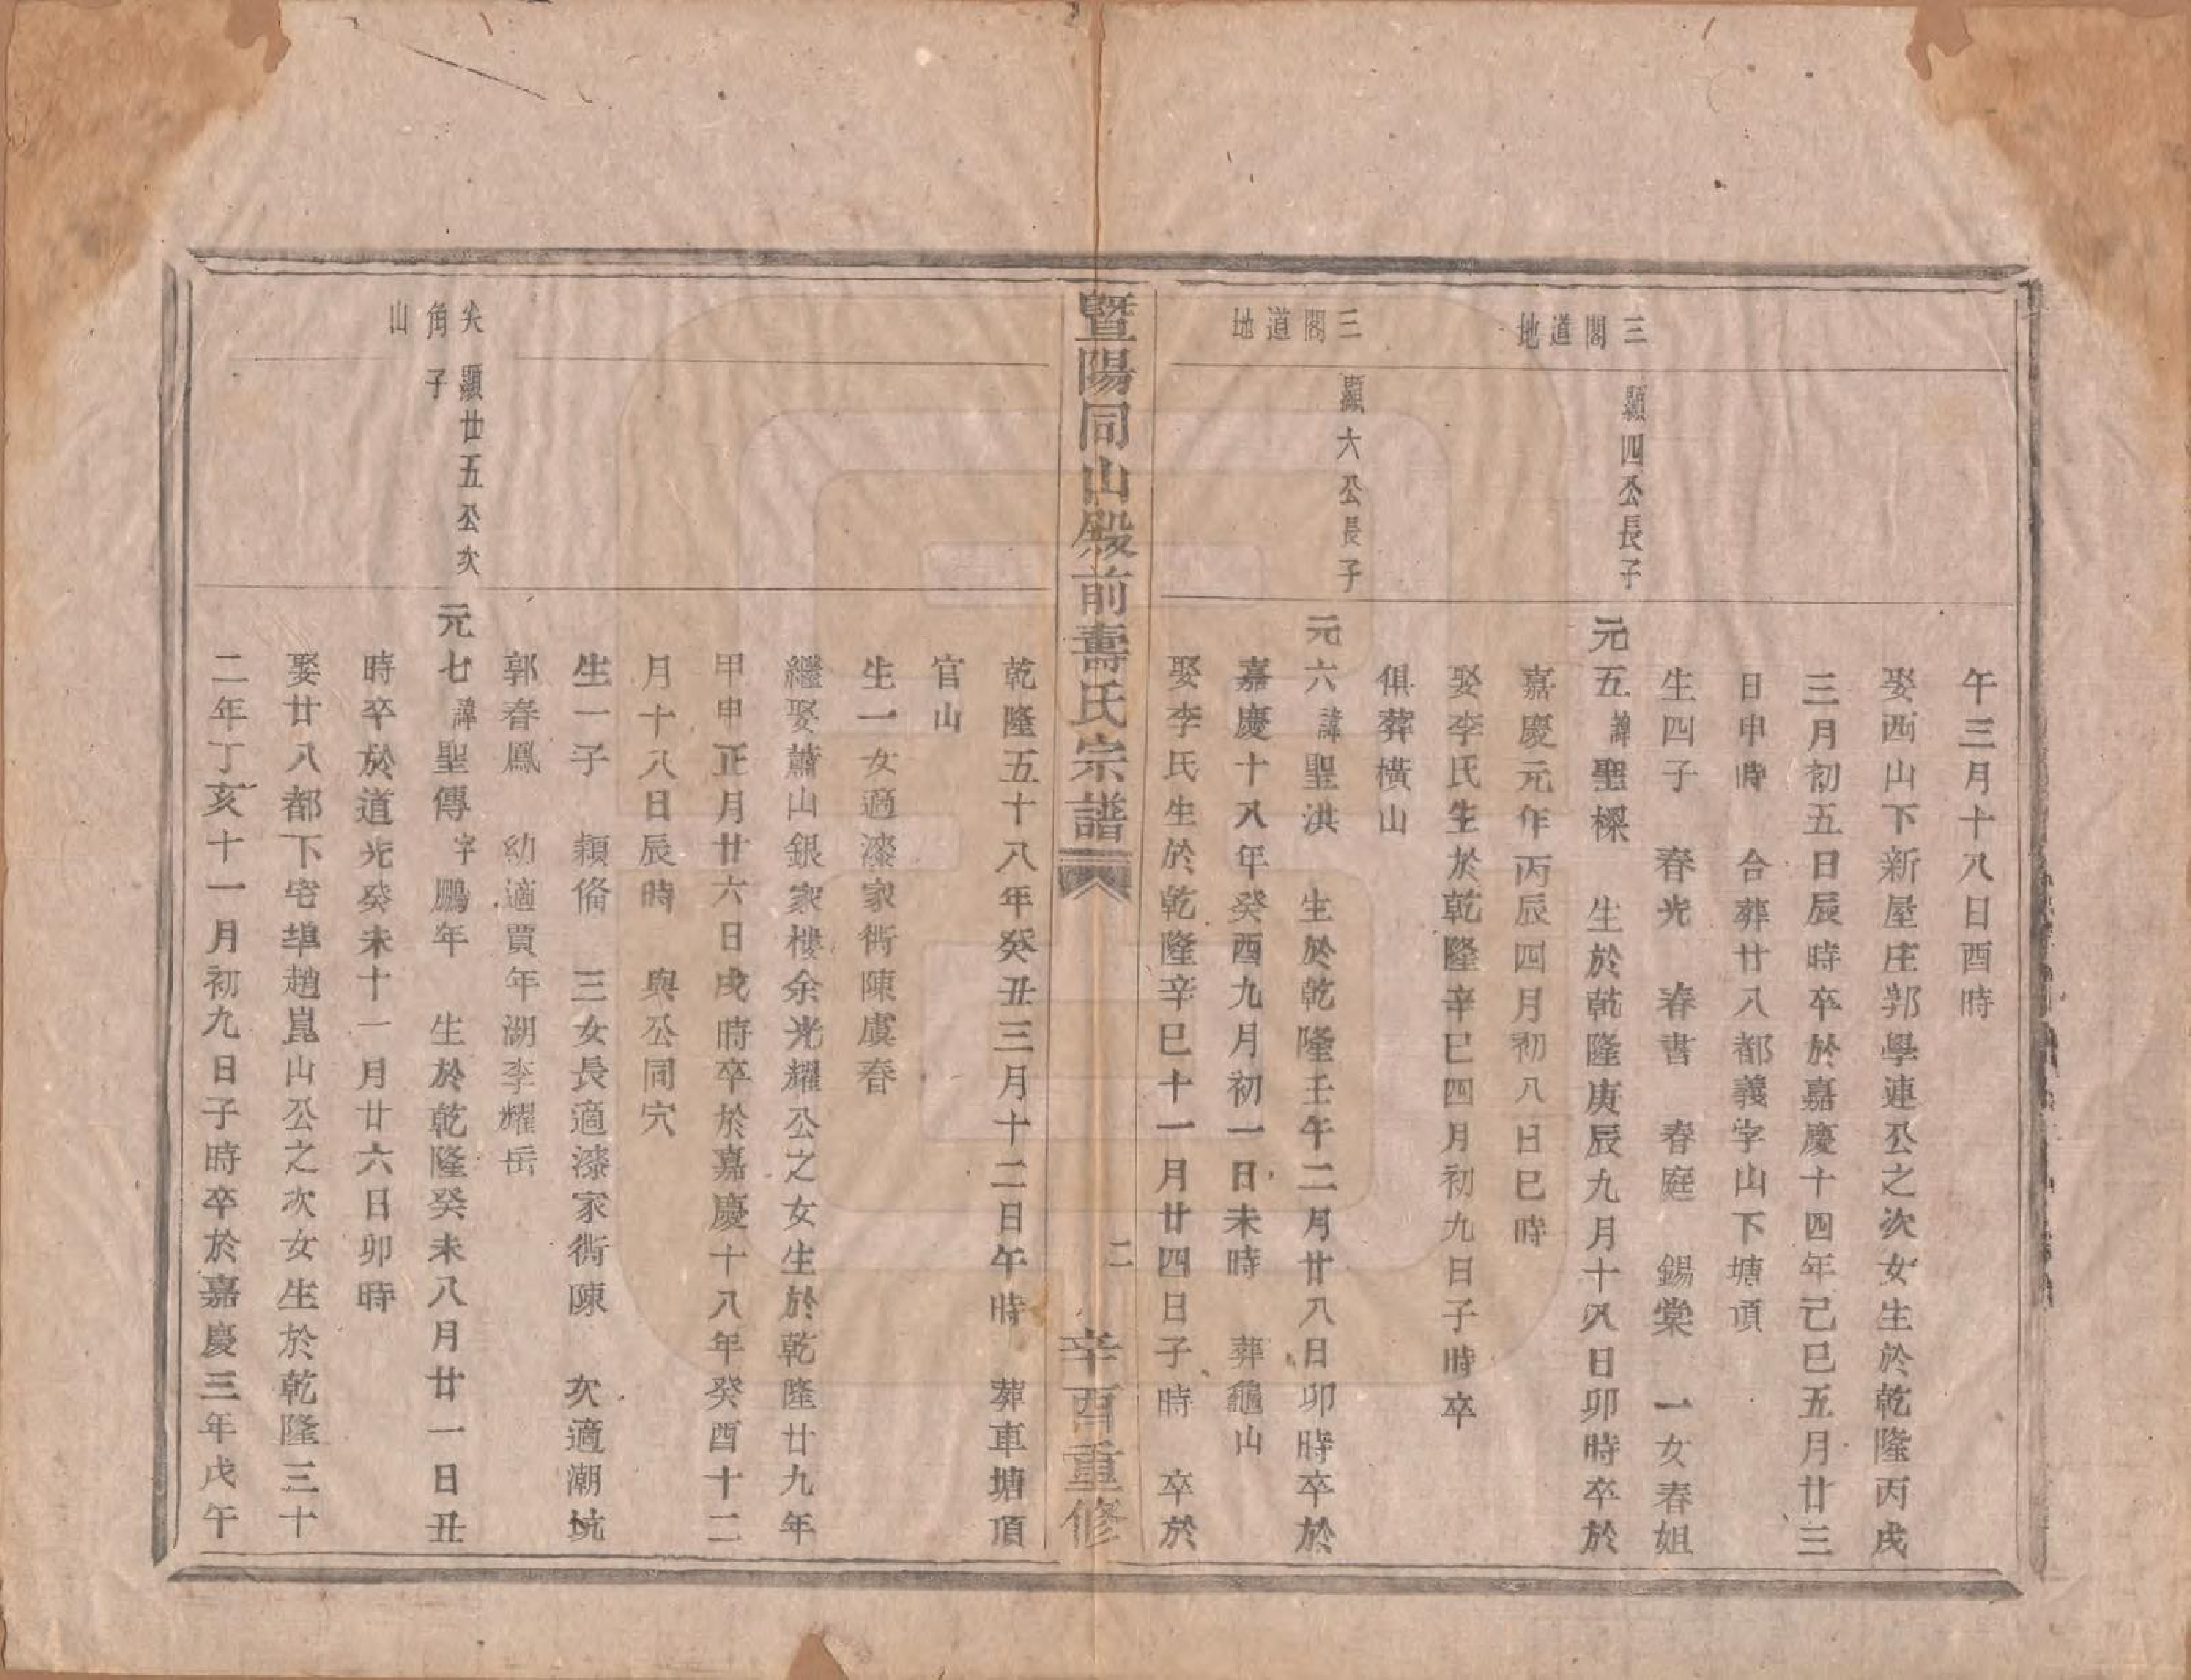 午三月十八日酉時
娶西山下新屋庄郭學連公之次女生於乾隆丙戌
三月初五日辰時卒於嘉慶十四年己巳五月廿三
日申時　合葬廿八都義字山下塘頂
生四子　春光　春書　春庭　錫棠　一女春姐
三閣道地
顯四公長子
元五諱聖樑　生於乾隆庚辰九月十八日卯時卒於
嘉慶元年丙辰四月初八日巳時
娶李氏生於乾隆辛巳四月初九日子時卒
俱葬橫山
三閣道地
顯六公長子
元六諱聖洪　生於乾隆壬午二月廿八日卯時卒於
嘉慶十八年癸酉九月初一日未時　葬龜山
娶李氏生於乾隆辛巳十一月廿四日子時　卒於
暨陽同山殿前壽氏宗譜　二　辛酉重修
乾隆五十八年癸丑三月十二日午時　葬車塘頂
官山
生一女適漆家衖陳虞春
繼娶蕭山銀家樓余光耀公之女生於乾隆廿九年
甲申正月廿六日戌時卒於嘉慶十八年癸酉十二
月十八日辰時　與公同穴
生一子　穎俻　三女長適漆家衖陳　次適潮坑
郭春鳳　幼適賈年湖李耀岳
尖角山
顯廿五公次子
元七諱聖傳字鵬年　生於乾隆癸未八月廿一日丑
時卒於道光癸未十一月廿六日卯時
娶廿八都下宅埠趙崑山公之次女生於乾隆三十
二年丁亥十一月初九日子時卒於嘉慶三年戊午